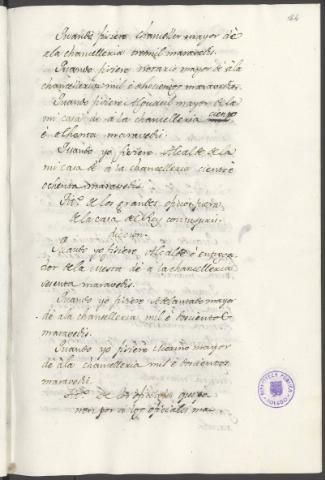 164
Quando fiziere Chanceller mayor dè
a la chancelleria tremil maravedis.
Quando fiziere notario mayor de à la
chancelleria mil è ochocientos maravedis.
Quando fiziere Alguacil mayor de la
mi casa dè à la chancelleria ciento
è ochenta maravedis.
Quando yo fiziere Alcalde de la
mi casa dè à la chancelleria ciento è
ochenta maravedis.
Tit.º de los grandes oficios fuera
de la casa del Rey con juris-
diccion.
Quando yo fiziere Alcalde è entrega-
dor de la mesta dè à la chancelleria
sesenta maravedis.
Quando yo fiziere Adelantado mayor
dè à la chancelleria mil è docientos
maravedis.
Quando yo fiziere Merino mayor
dè à la chancelleria mil è docientos
maravedis.
Tit.º de los oficiales que po-
nen por si los oficiales ma-
BIBLIOTECA PUBLICA
TOLEDO